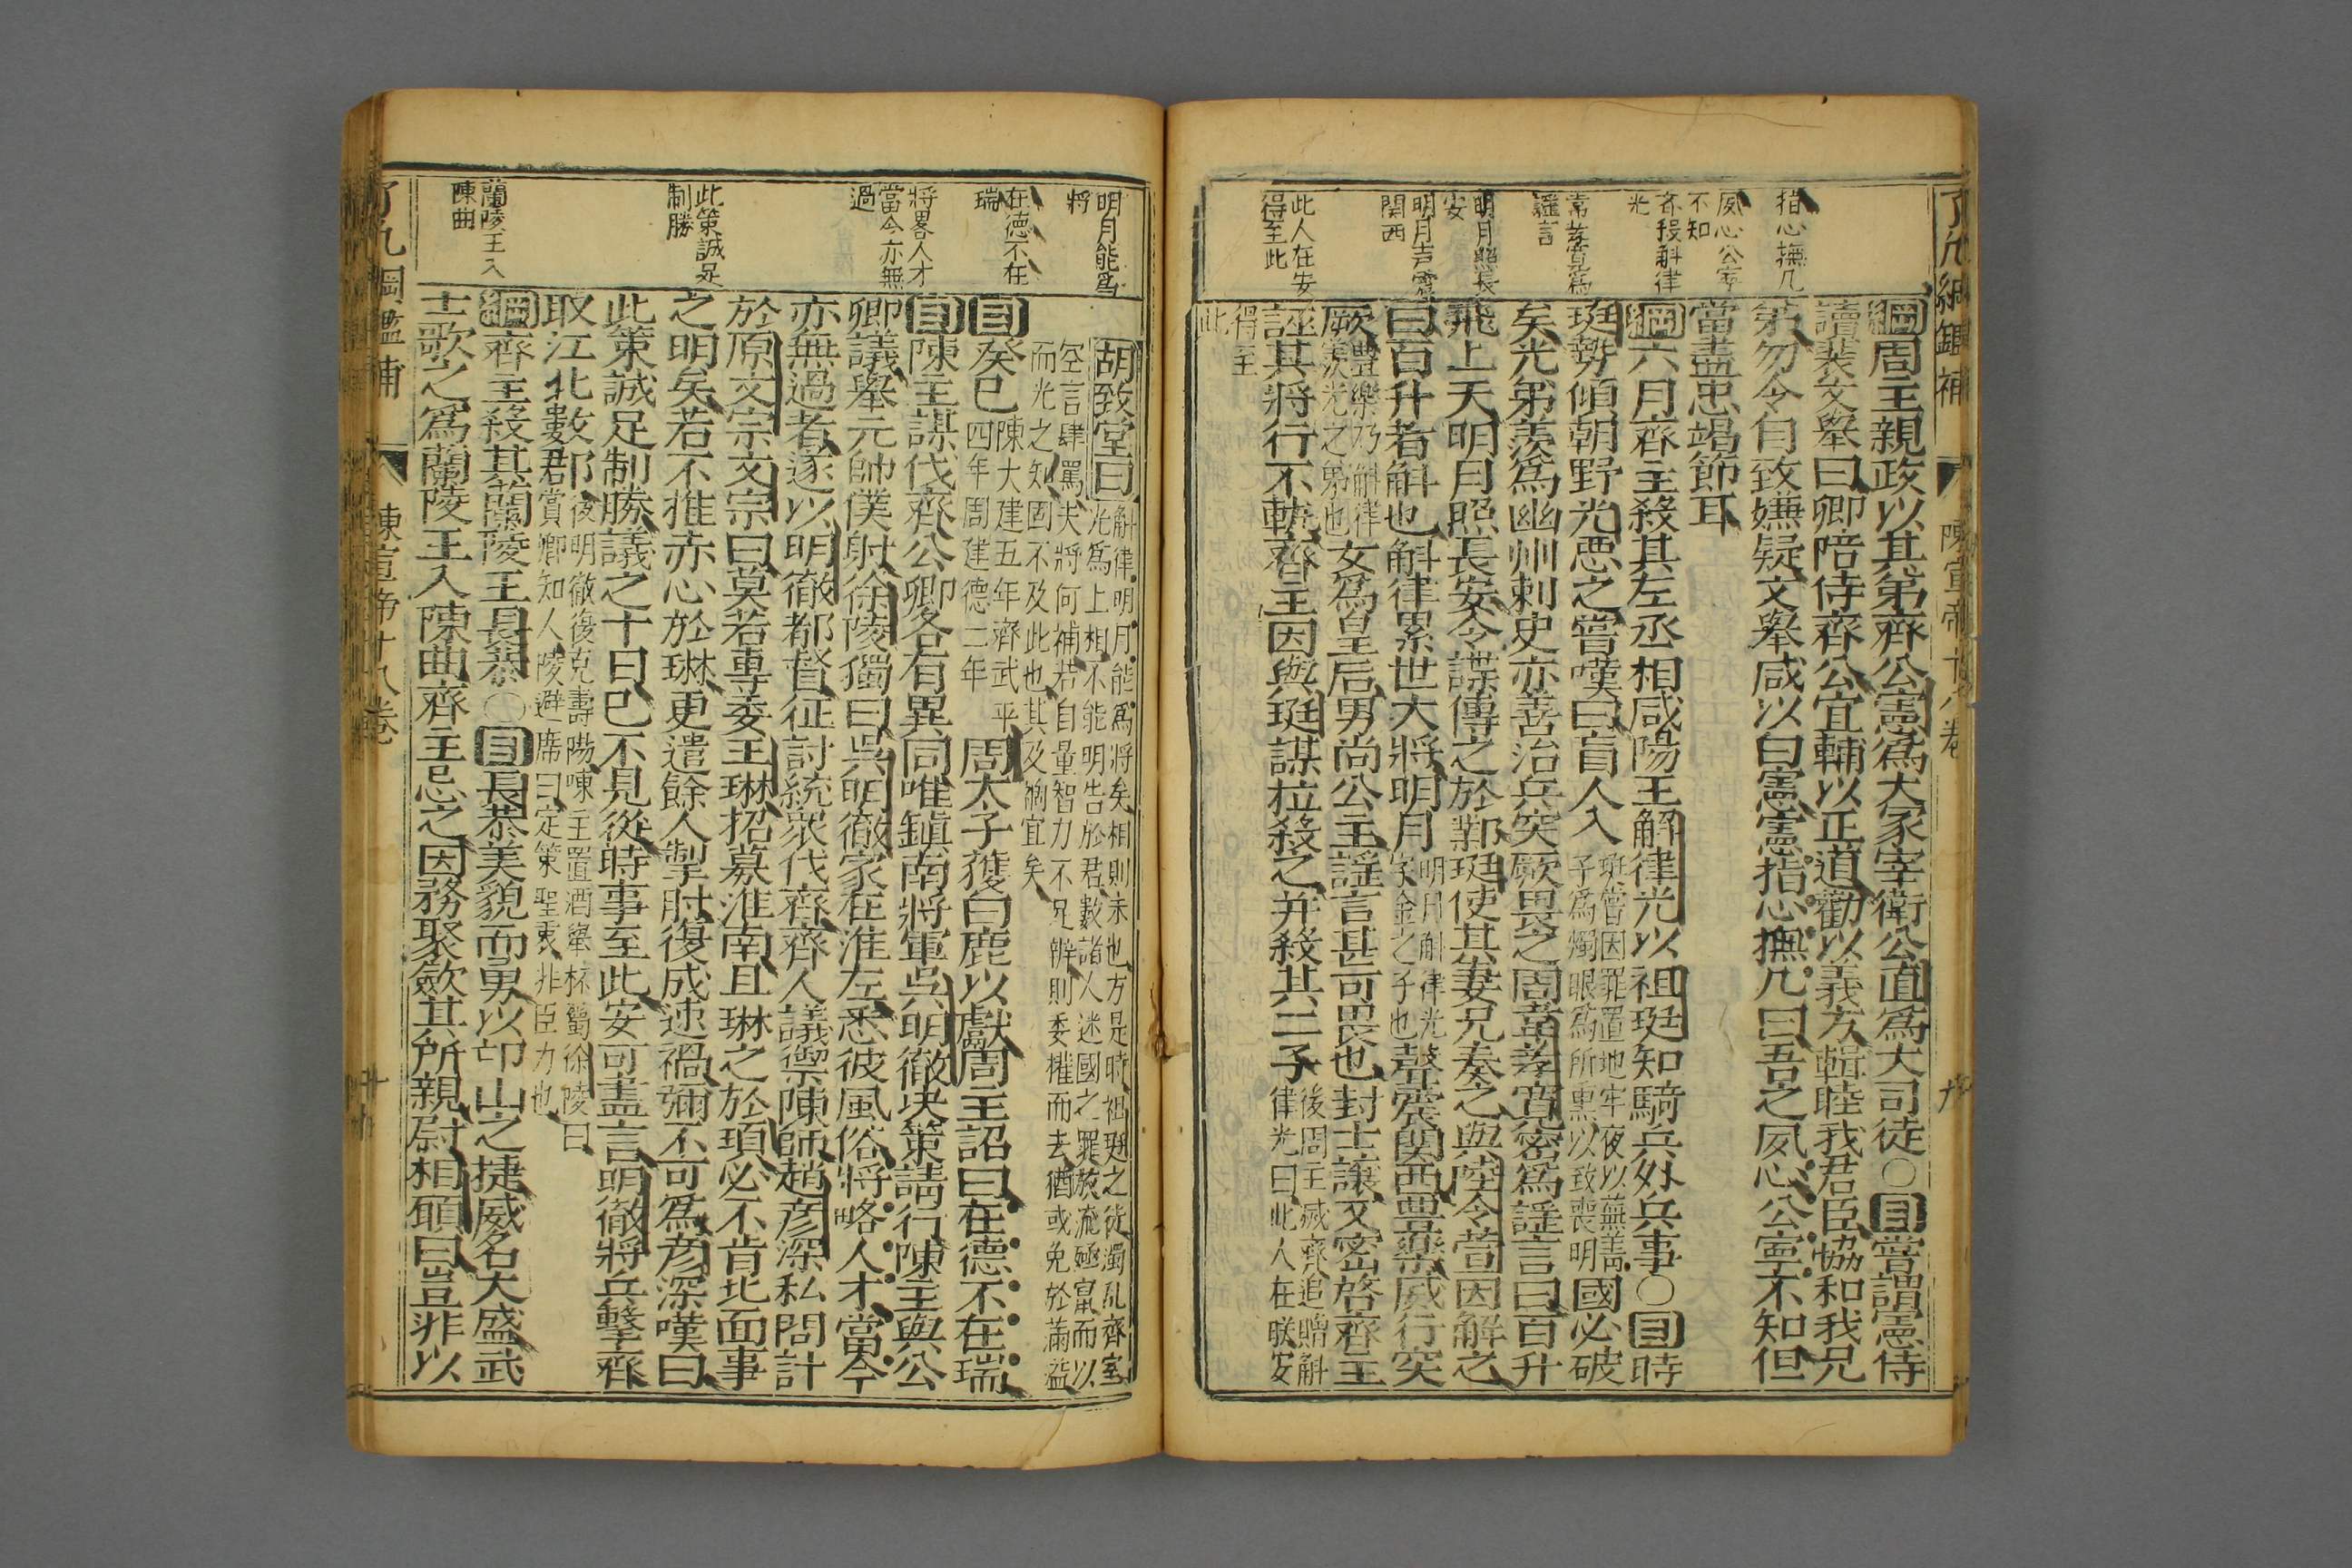 了凡綱鑑補
陳宣帝十八卷
指心撫几
夙心公寧
不知
齊殺斛律
光
常嘆息為
謠言
明月照長
安
明月声震
関西
此人在安
得至此
綱周主親政以其弟齊公憲為大冢宰衛公直為大司徒○目嘗謂憲侍
讀裴文舉曰卿陪侍齊公宜輔以正道勸以義方輯睦我君臣協和我兄
弟勿令自致嫌疑文舉咸以白憲憲指心撫几曰吾之夙心公寧不知但
當盡忠竭節耳
綱六月齊主殺其左丞相咸陽王斛律光以祖珽知騎兵外兵事○目時
珽勢傾朝野光惡之嘗嘆曰盲人入
珽嘗因罪置地牢夜以蕪菁
子為燭眼為所熏以致喪明
國必破
矣光弟羨為幽州刺史亦善治兵突厥畏之周韋孝寛密為謠言曰百升
飛上天明月照長安令諜傳之於鄴珽使其妻兄奏之與陸令萱因解之
曰百升者斛也斛律累世大將明月
明月斛律光
字金之子也
聲震関西豊楽威行突
厥
豊樂乃斛律
羨光之弟也
女為皇后男尚公主謡言甚可畏也封士讓又密啓齊主
誣其將行不軌齊主因與珽謀拉殺之并殺其二子
後周主滅齊追贈斛
律光曰此人在朕安
得至
此
明月能為
將
在德不在
瑞
將畧人才
當今亦無
過
此策誠足
制勝
蘭陵王入
陳曲
胡致堂曰
斛律明月能為將矣相則未也方是時祖珽之徒濁乱齊室
光為上相不能明告於君數諸人迷國之罪放流殛竄而以
空言肆罵夫將何補若自量智力不足辨則委權而去猶或免於滿溢
而光之知固不及此也其及禍宜矣
目癸巳
陳大建五年齊武平
四年周建德二年
周太子獲白鹿以獻周主詔曰在德不在瑞
目陳主謀伐齊公卿各有異同唯鎮南將軍吳明徹决策請行陳主與公
卿議舉元帥僕射徐陵獨曰吳明徹家在淮左悉彼風俗將略人才當今
亦無過者遂以明徹都督征討統衆伐齊齊人議禦陳師趙彦深私問計
於原文宗文宗曰莫若專委王琳招募淮南且琳之於頊必不肯北面事
之明矣若不推赤心於琳更遣餘人掣肘復成速禍彌不可為彦深嘆曰
此策誠足制勝議之十日已不見從時事至此安可盡言明徹將兵擊齊
取江北數郡
後明徹復克壽陽陳主置酒舉杯屬徐陵曰
君賞卿知人陵避席曰定策聖衷非臣力也
綱齊主殺其蘭陵王長恭○目長恭美貌而勇以邙山之捷威名大盛武
士歌之為蘭陵王入陳曲齊主忌之因務聚斂其所親尉相願曰豈非以
了凡綱鑑補
陳宣帝十八卷
十九